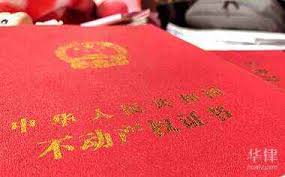 中华人民共和国
不动产权证书
华律